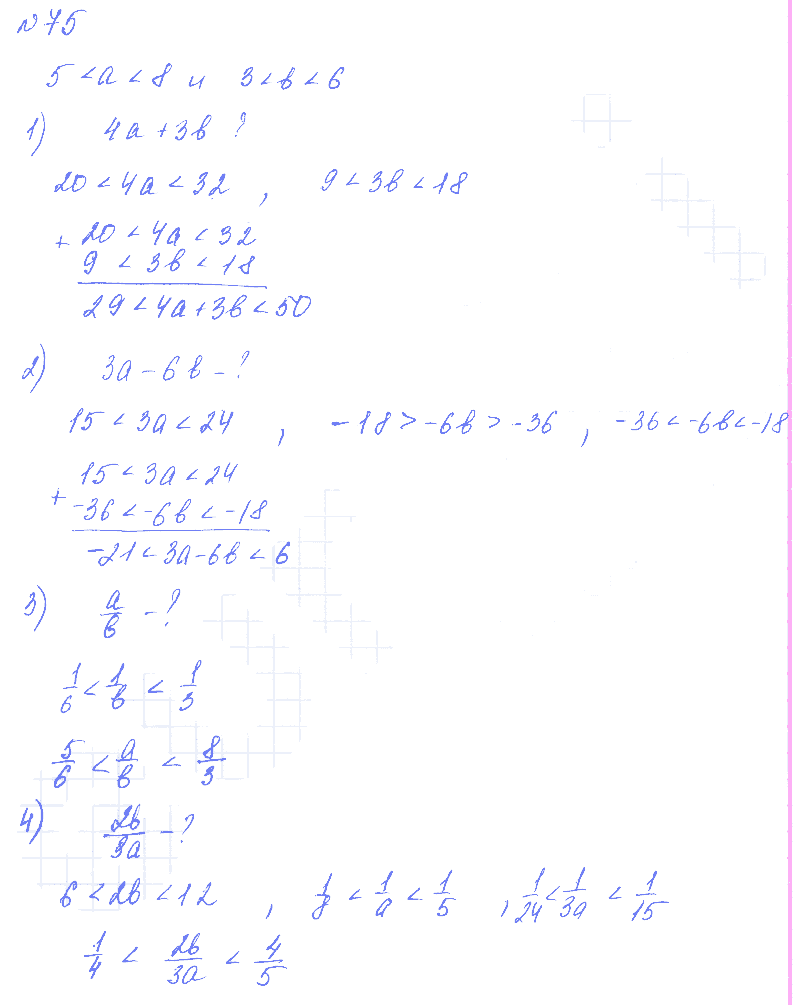 №75
5 < a < 8 и 3 < в < 6
1) 4a + 3в ?
20 < 4a < 32 , 9 < 3в < 18
+ 20 < 4a < 32
9 < 3в < 18
29 < 4a + 3в < 50
2) 3a - 6в - ?
15 < 3a < 24 , -18 > -6в > -36 , -36 < -6в < -18
+ 15 < 3a < 24
-36 < -6в < -18
-21 < 3a - 6в < 6
3) a/в - ?
1/6 < 1/в < 1/3
5/6 < a/в < 8/3
4) 2в/3a - ?
6 < 2в < 12 , 1/8 < 1/a < 1/5 , 1/24 < 1/3a < 1/15
1/4 < 2в/3a < 4/5